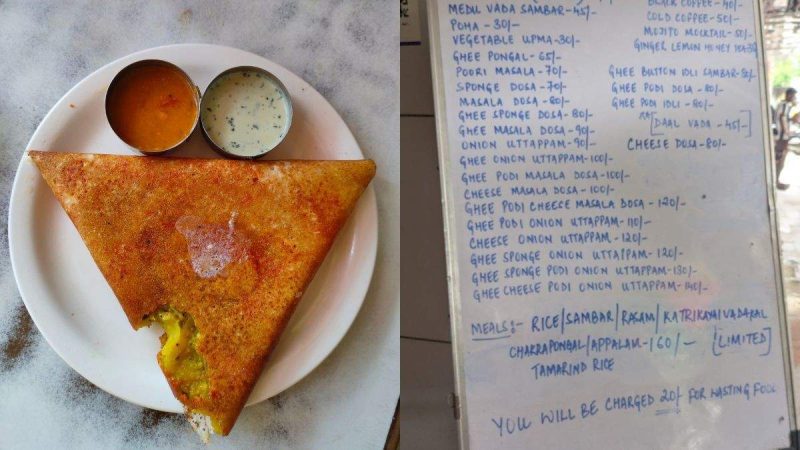 MEDU VADA SAMBAR-45/-
POHA-30/-
VEGETABLE UPMA-30/-
GHEE PONGAL-65/-
POORI MASALA-70/-
SPONGE DOSA-70/-
MASALA DOSA-80/-
GHEE SPONGE DOSA-80/-
GHEE MASALA DOSA-90/-
ONION UTTAPPAM-90/-
GHEE ONION UTTAPPAM-100/-
GHEE PODI MASALA DOSA-100/-
CHEESE MASALA DOSA-100/-
GHEE PODI CHEESE MASALA DOSA-120/-
GHEE PODI ONION UTTAPPAM-110/-
CHEESE ONION UTTAPPAM-120/-
GHEE SPONGE ONION UTTAPPAM-120/-
GHEE SPONGE PODI ONION UTTAPPAM-130/-
GHEE CHEESE PODI ONION UTTAPPAM-140/-
BLACK COFFEE-40/-
COLD COFFEE-50/-
MOJITO MOCKTAIL-50/-
GINGER LEMON HONEY
GHEE BUTTON IDLI SAMBAR-80/-
GHEE PODI DOSA-80/-
GHEE PODI IDLI-80/-
[DAAL VADA-45/-]
CHEESE DOSA-80/-
MEALS:- RICE/SAMBAR/RASAM/KATRIKAYAI VADAKAL
CHAKRAPONGAL/APPALAM-160/- [LIMITED]
TAMARIND RICE
YOU WILL BE CHARGED 20/- FOR WASTING FOOD